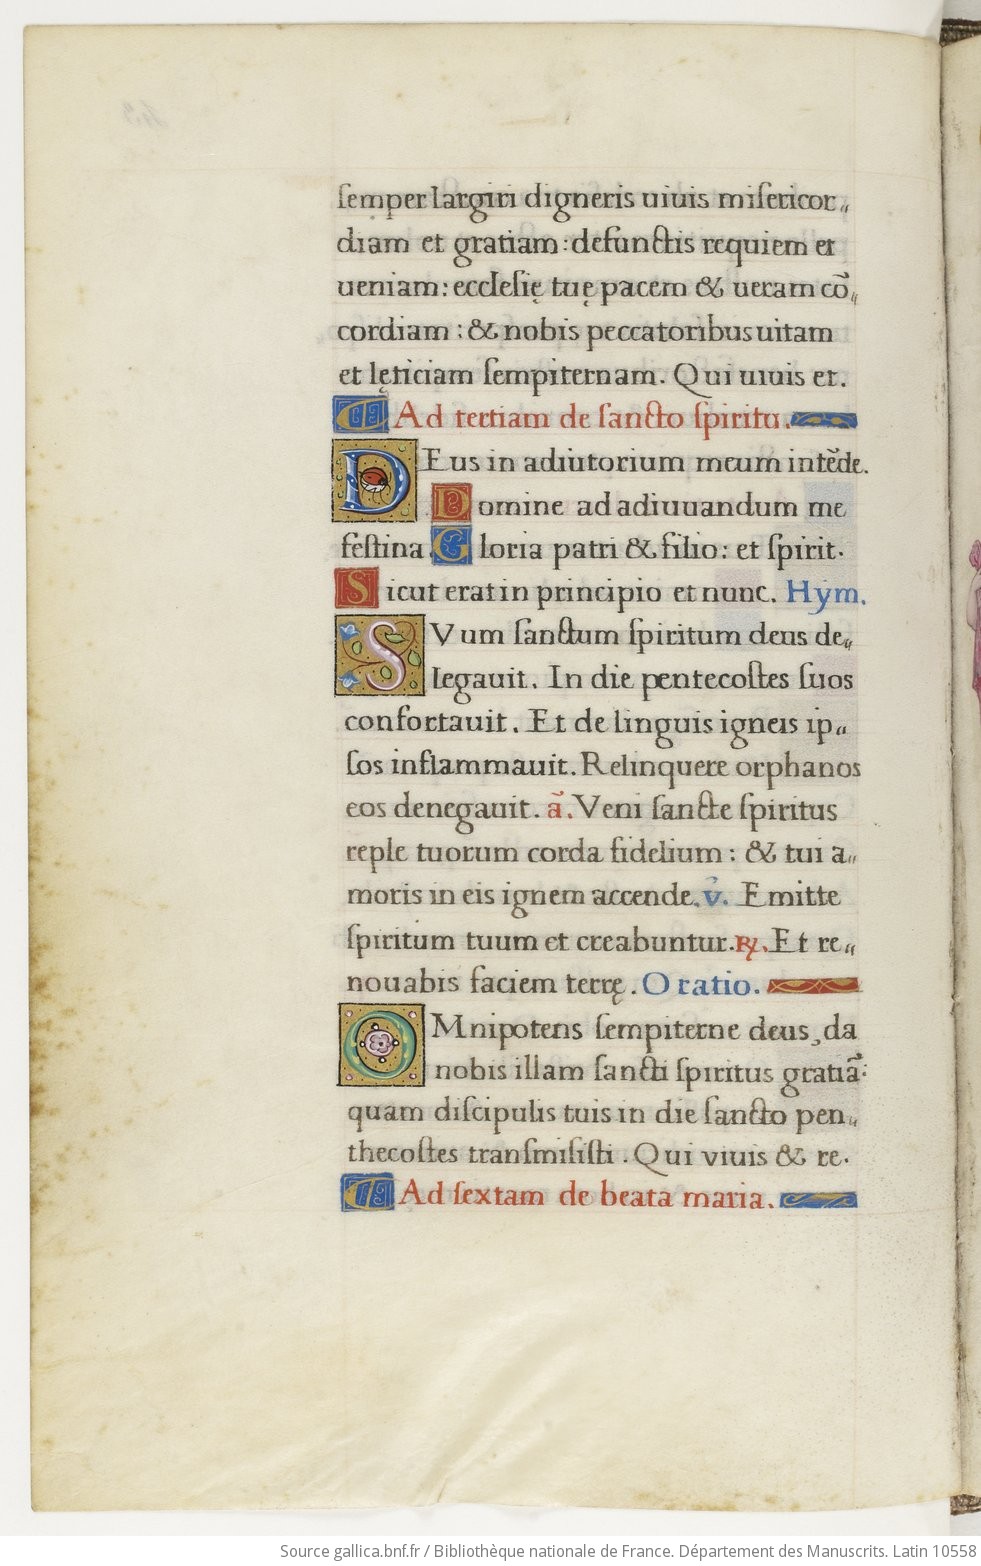 semper largiri digneris uiuis misericor„
diam et gratiam: defunctis requiem et
ueniam: ecclesię tuę pacem & ueram cō„
cordiam: & nobis peccatoribus uitam
et lęticiam sempiternam. Qui uiuis et.
Ad tertiam de sancto spiritu.
DEus in adiutorium meum intēde.
Domine ad adiuuandum me
festina. Gloria patri & filio: et spirit.
Sicut erat in principio et nunc. Hym.
SVum sanctum spiritum deus de„
legauit. In die pentecostes suos
confortauit. Et de linguis igneis ip„
sos inflammauit. Relinquere orphanos
eos denegauit. ā. Veni sancte spiritus
reple tuorum corda fidelium: & tui a„
moris in eis ignem accende. v̄. Emitte
spiritum tuum et creabuntur. ℞. Et re„
nouabis faciem terrę. Oratio.
OMnipotens sempiterne deus, da
nobis illam sancti spiritus gratiā:
quam discipulis tuis in die sancto pen„
thecostes transmisisti. Qui viuis & re.
Ad sextam de beata maria.
Source gallica.bnf.fr / Bibliothèque nationale de France. Département des Manuscrits. Latin 10558